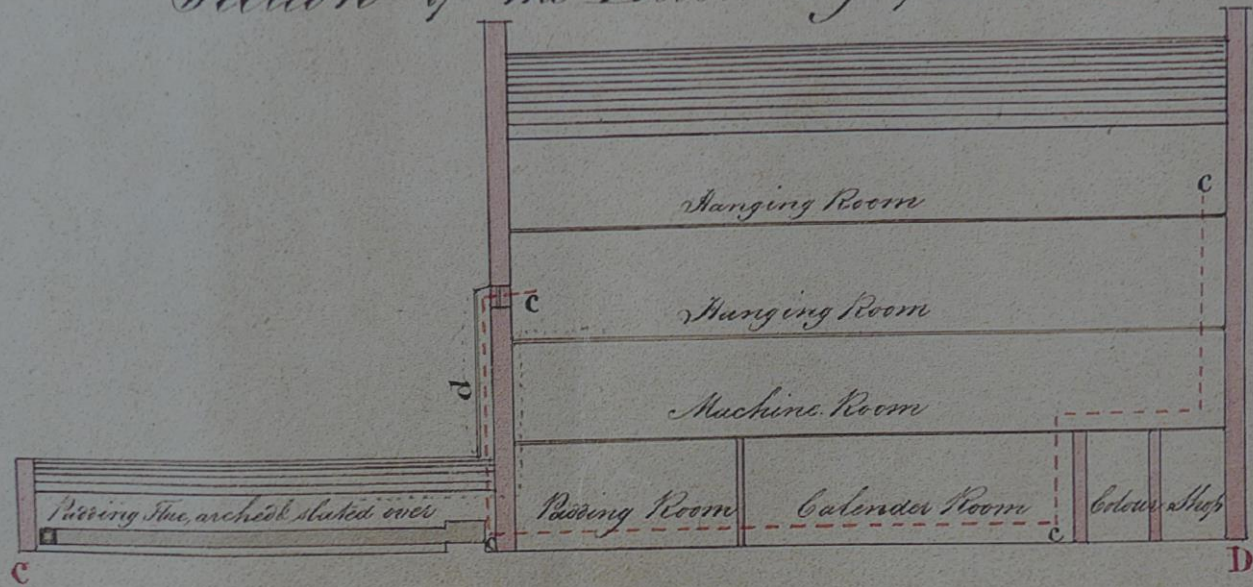 Section of the
c
Hanging Room
c
Hanging Room
d
Machine Room
Padding Flue, arched & slated over
Padding Room
Calender Room
Colour Shop
c
c
C
D